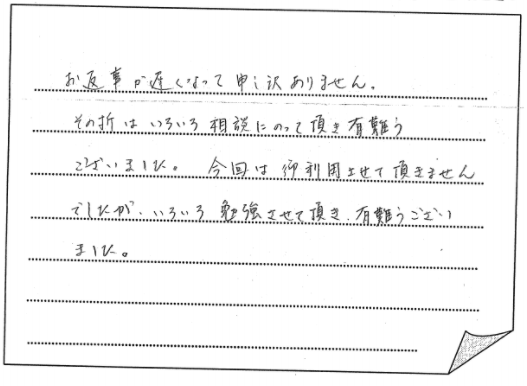 お返事が遅くなって申し訳ありません。
その折はいろいろ相談にのって頂き有難う
ございました。 今回は御利用させて頂きません
でしたが、いろいろ勉強させて頂き、有難うござい
ました。